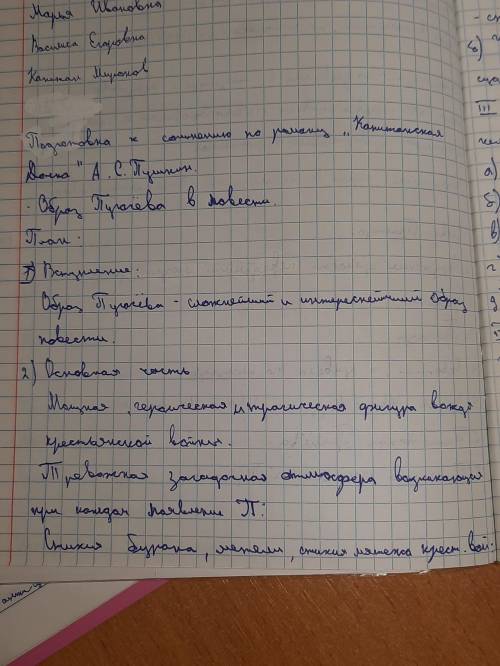 Марья Ивановна
Василиса Егоровна
Капитан Миронов
Подготовка к сочинению по роману „Капитанская
Дочка" А.С.Пушкин.
Образ Пугачёва в повести.
План.
1) Вступление:
Образ Пугачёва - сложнейший и интереснейший образ
повести.
2) Основная часть
Мощная, героическая и трагическая фигура вождя
крестьянской войны.
Тревожная загадочная атмосфера возникающая
при каждом появлении П:
Стихия бурана, метели, стихия мятежа крест. вой-
б)
III
а)
б)
в)
г
д